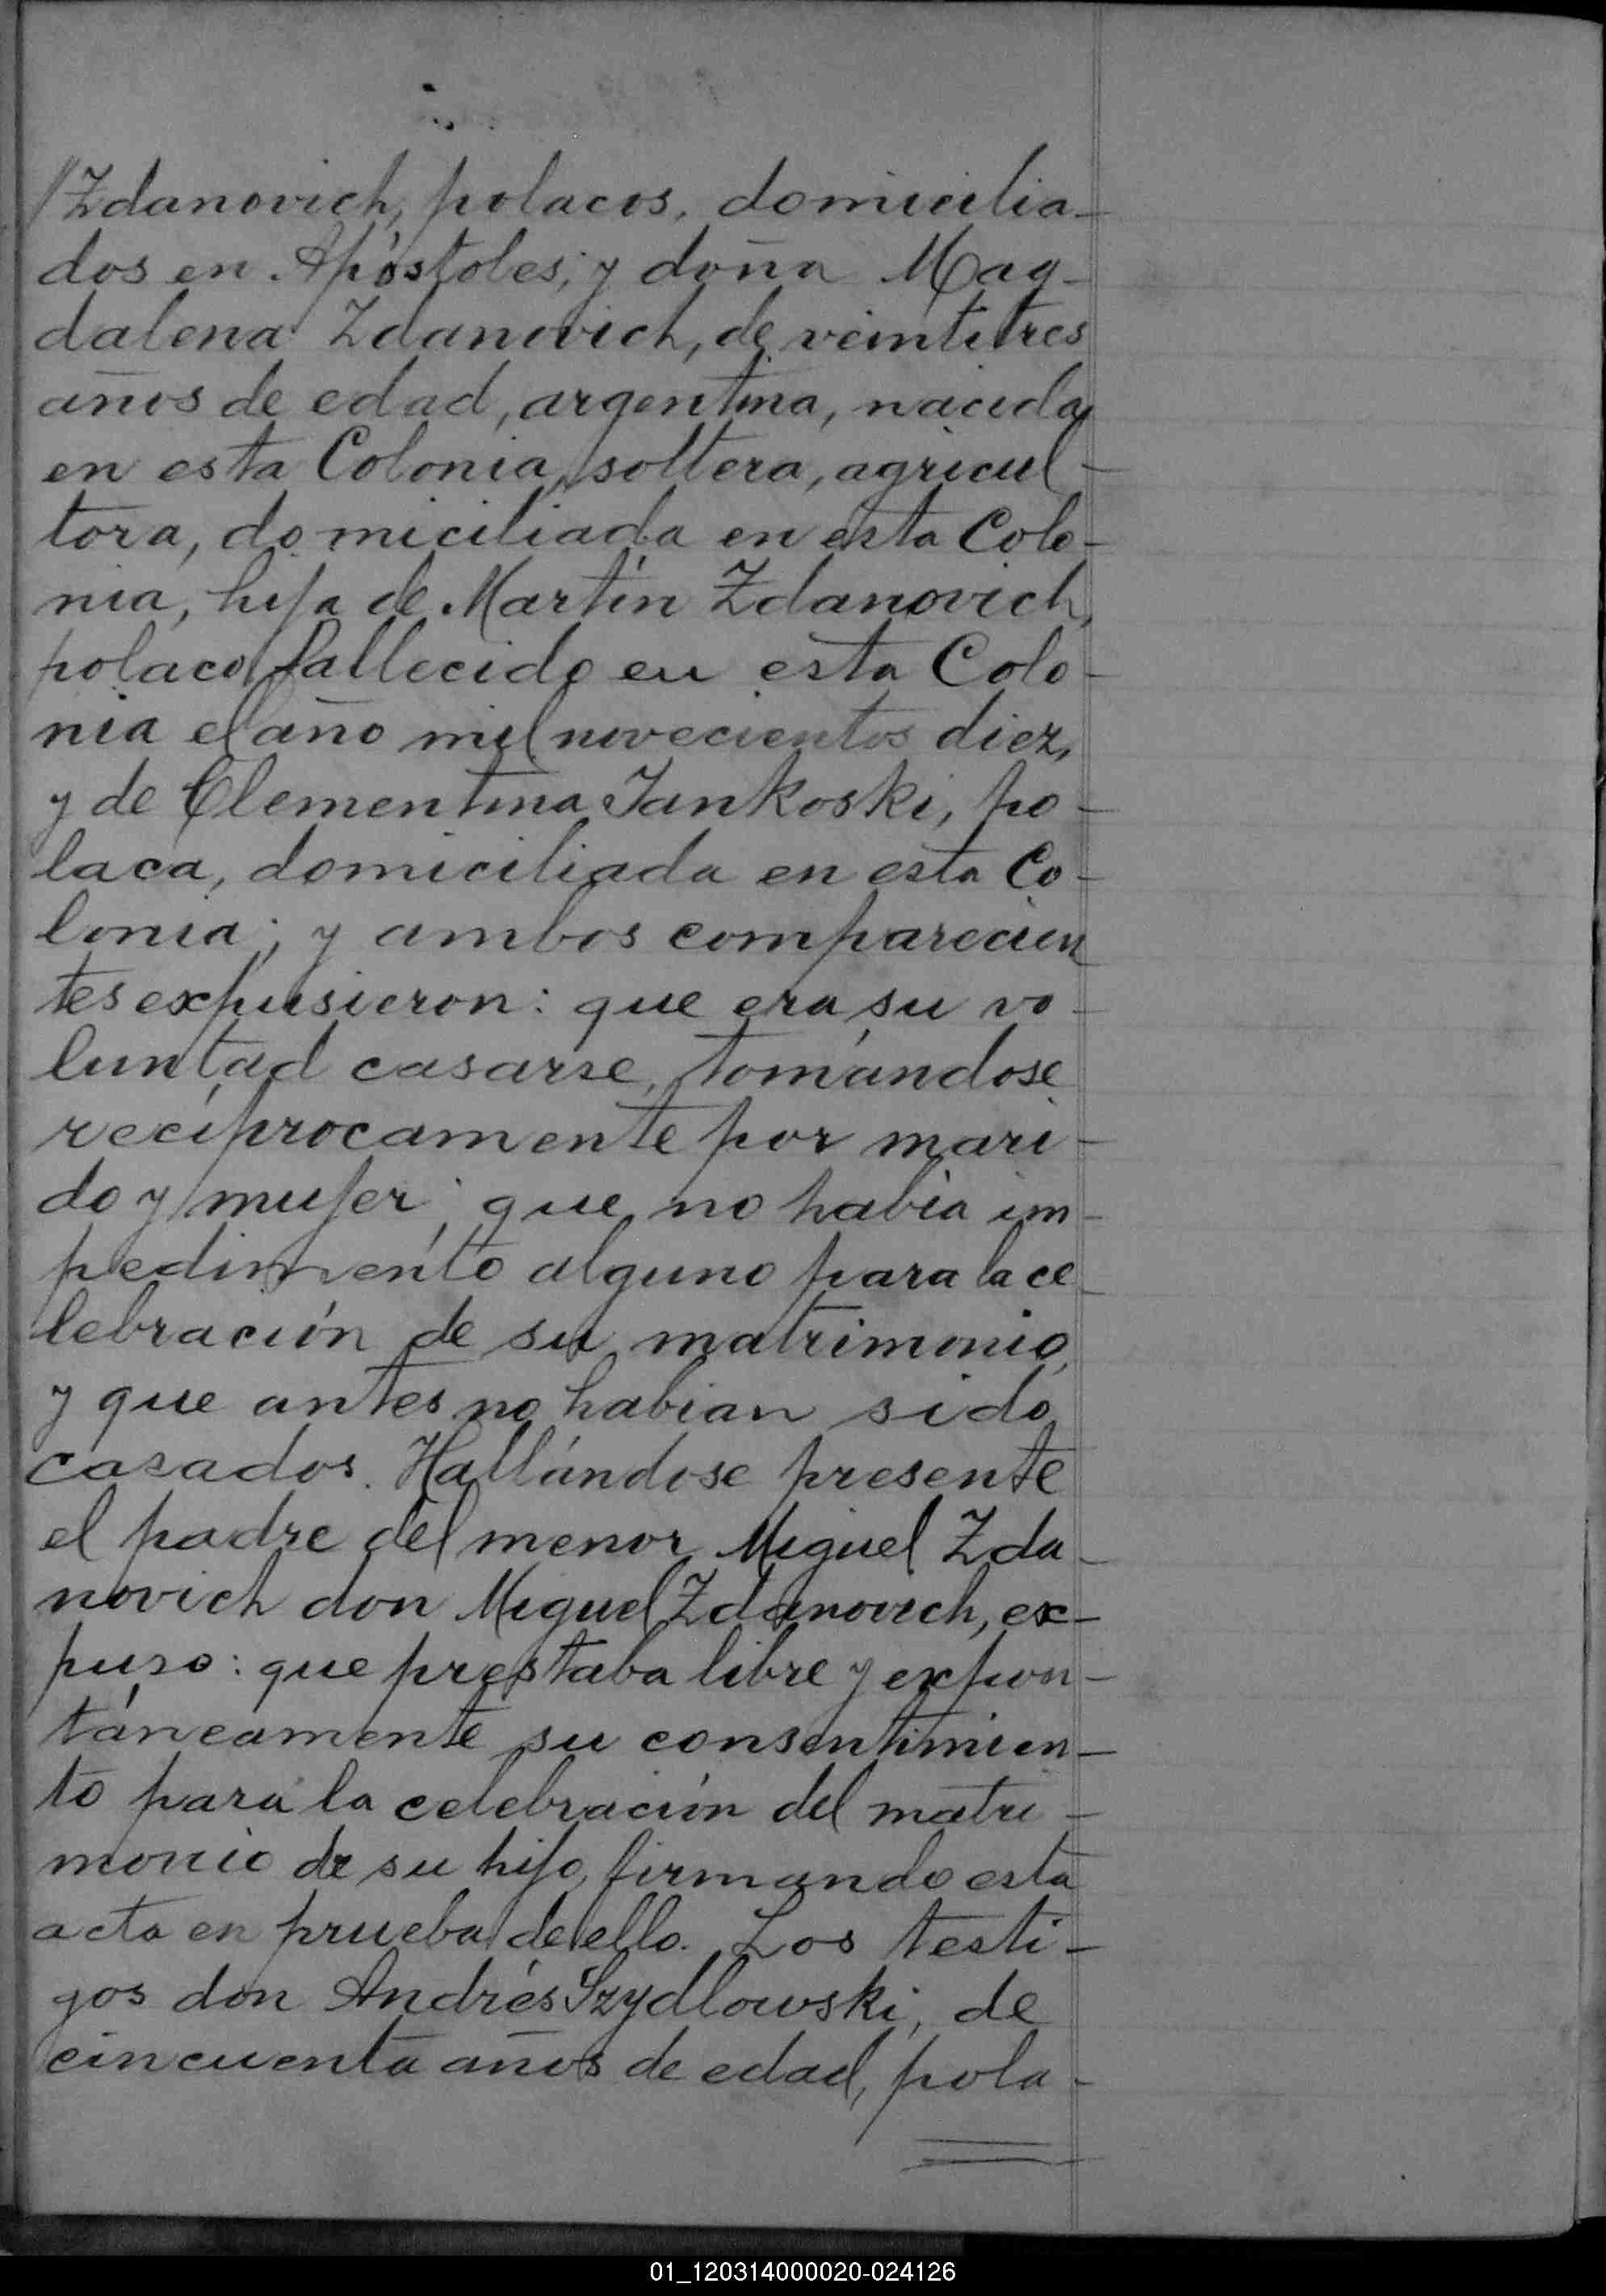 //Zdanovich, polacos, domicilia-
dos en Apóstoles; y doña Mag-
dalena Zdanovich, de veintitres
años de edad, argentina, nacida
en esta Colonia, soltera, agricul-
tora, domiciliada en esta Colo-
nia, hija de Martín Zdanovich,
polaco, fallecido en esta Colo-
nia el año mil novecientos diez,
y de Clementina Jankoski, po-
laca, domiciliada en esta Co-
lonia; y ambos comparecien
tes expusieron: que era su vo-
luntad casarse, tomándose
recíprocamente por mari-
do y mujer; que no había im-
pedimento alguno para la ce-
lebración de su matrimonio,
y que antes no habian sido
casados. Hallándose presente
el padre del menor Miguel Zda-
novich don Miguel Zdanovich, ex-
puso: que prestaba libre y expon-
táneamente su consentimien-
to para la celebración del matri-
monio de su hijo, firmando esta
acta en prueba de ello. Los testi-
gos don Andrés Szydlowski, de
cincuenta años de edad, pola-
01_120314000020-024126